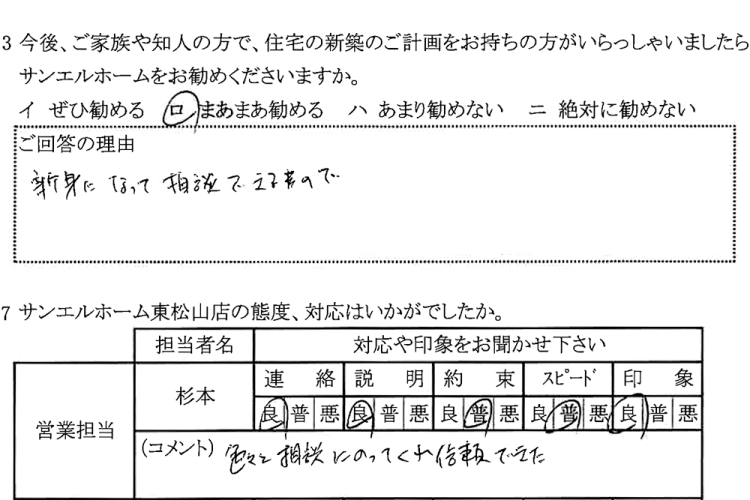 3 今後、ご家族や知人の方で、住宅の新築のご計画をお持ちの方がいらっしゃいましたら
サンエルホームをお勧めくださいますか。
イ ぜひ勧める ロ まあまあ勧める ハ あまり勧めない ニ 絶対に勧めない
ご回答の理由
新身になって相談できるので
7 サンエルホーム東松山店の態度、対応はいかがでしたか。
担当者名 対応や印象をお聞かせ下さい
営業担当 杉本 連絡 説明 約束 スピード 印象
良 普 悪 良 普 悪 良 普 悪 良 普 悪 良 普 悪
(コメント) 色々と相談にのってくれ信頼できた